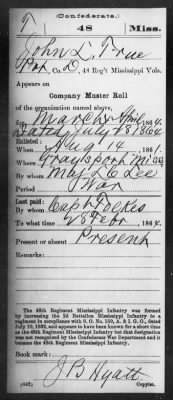 (Confederate.)
T 48 Miss.
John L. True
Pvt, Co. D, 48 Reg't Mississippi Vols.
Appears on
Company Muster Roll
of the organization named above,
for March & Apl, 1864.
Dated July 28 1864
Enlisted:
When Aug 14, 1861.
Where Graysport Miss
By whom Maj L C Lee
Period War
Last paid:
By whom Capt
To what time 28 Febr, 1864.
Present or absent Present
Remarks:
The 48th Regiment Mississippi Infantry was formed by
increasing the 2d Battalion Mississippi Infantry to a
regiment in compliance with S. O. No. 159, A. & I. G. O., dated
and appears to have been known for a short time
as the 45th Regiment Mississippi Infantry but that designation
was not recognized by the Confederate War Department and it
became the 48th Regiment Mississippi Infantry.
Book mark:
(642) J B Hyatt
Copyist.